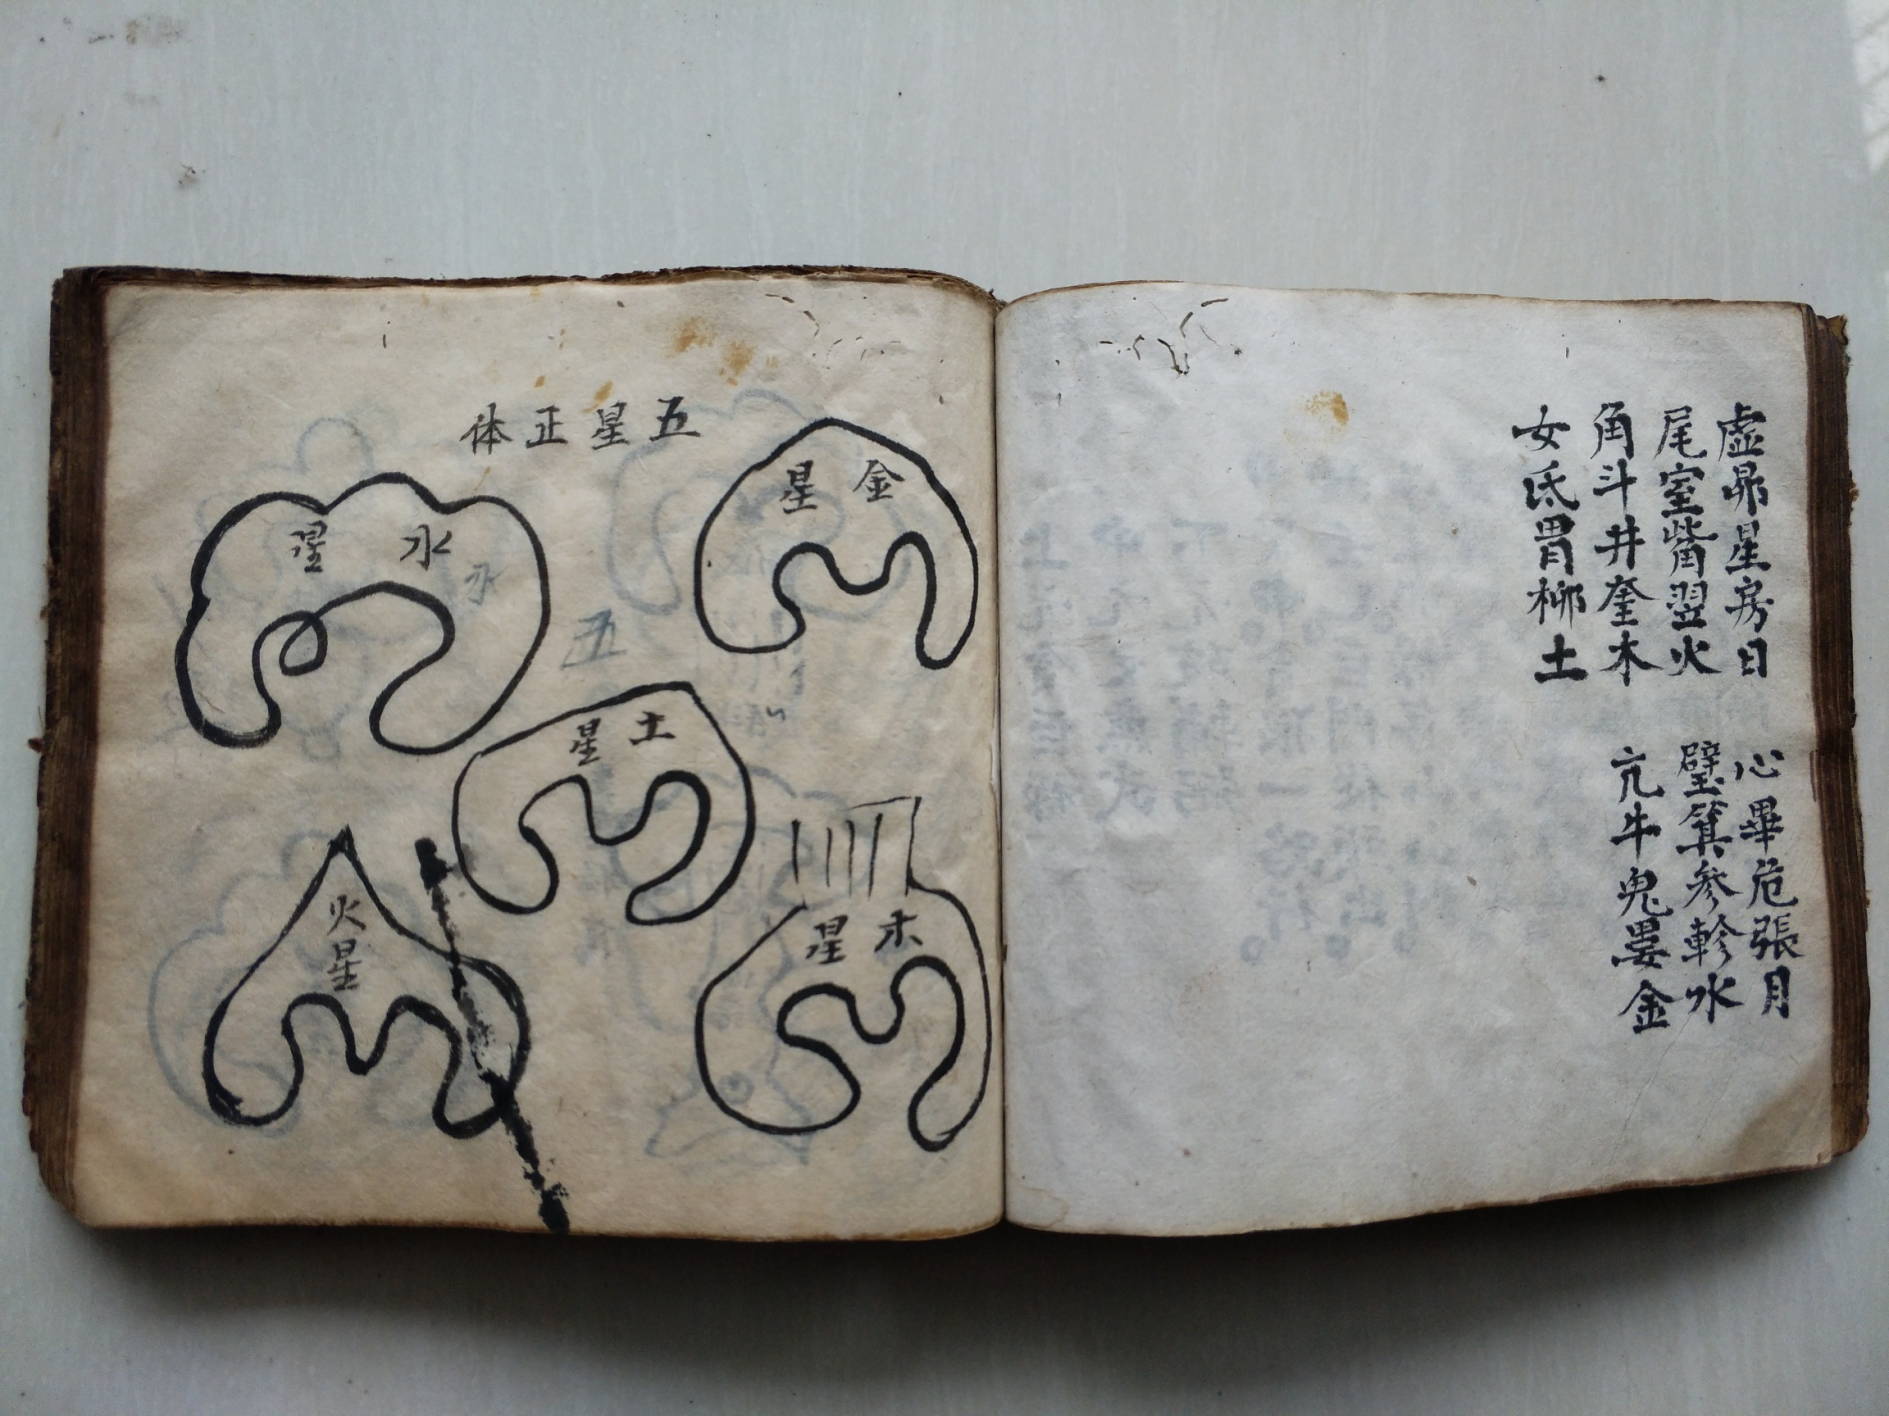 虛昴星房日
心畢危張月
尾室觜翌火
壁箕参軫水
角斗井奎木
亢牛鬼婁金
女氐胃柳土
五星正体
金星
水星
水
五
土星
木星
火星